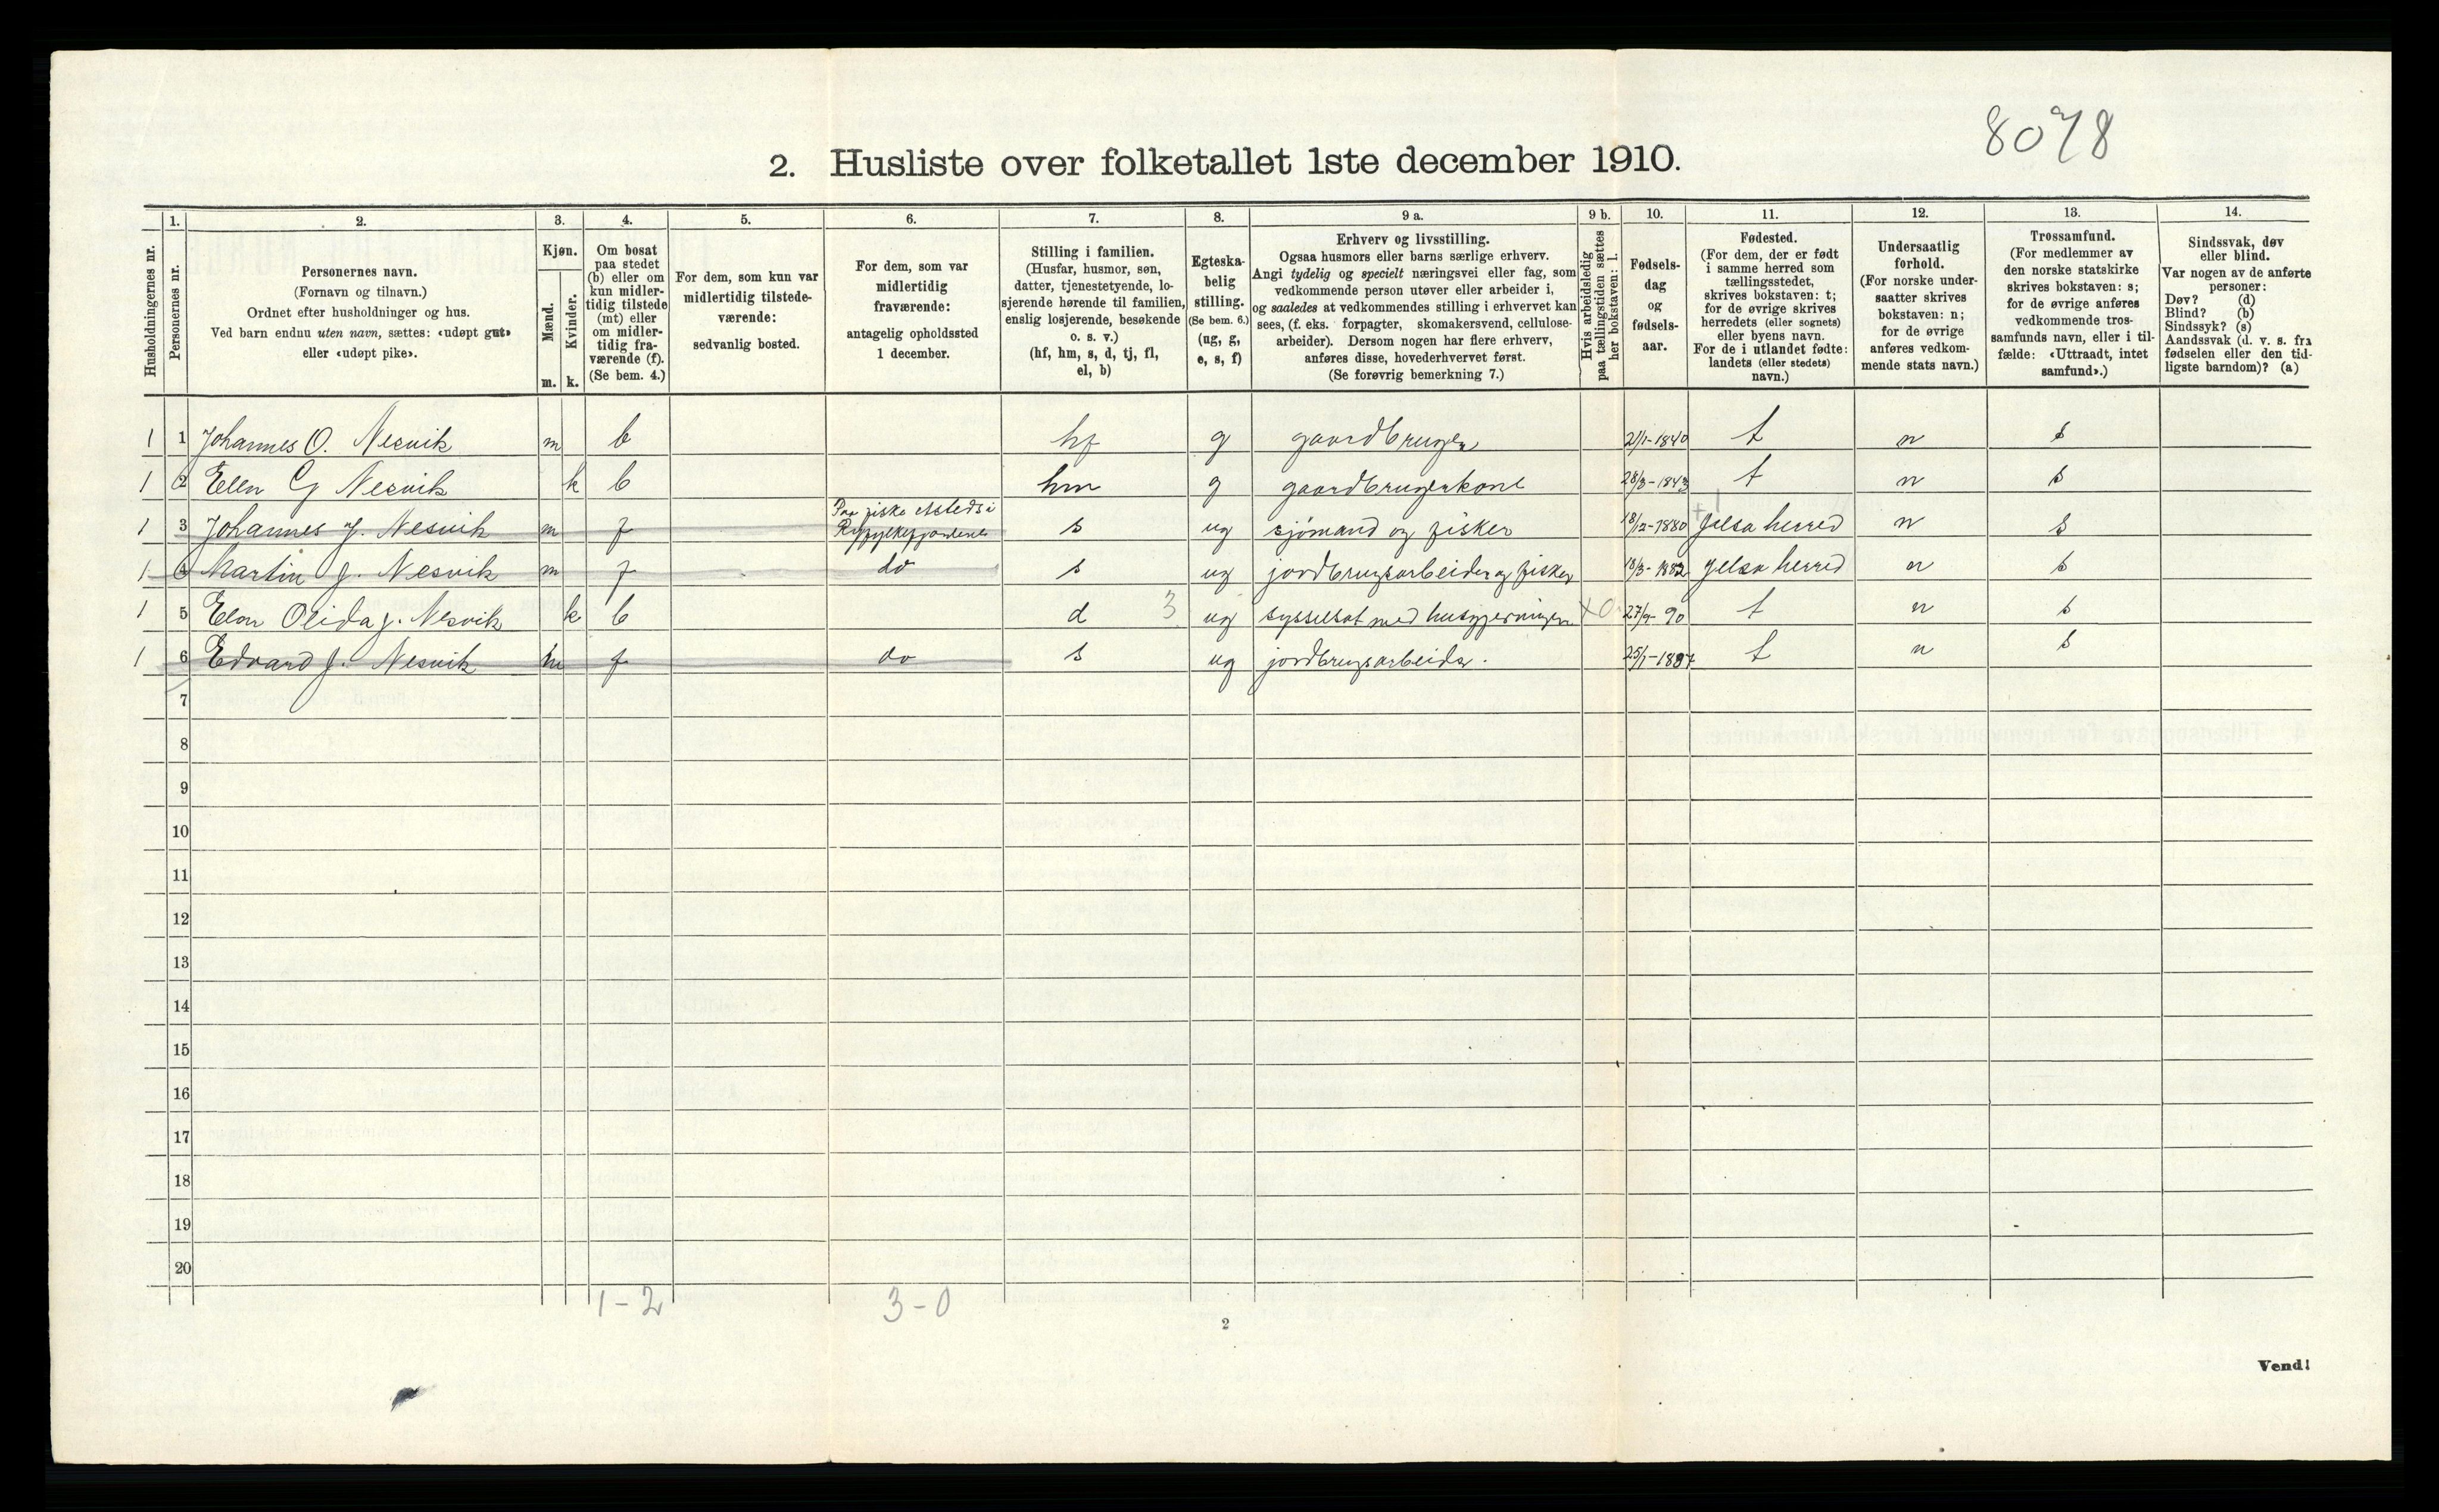 8078
2. Husliste over folketallet 1ste december 1910.
Husholdningernes nr.
1.
Personernes nr.
2.
Personernes navn.
(Fornavn og tilnavn.)
Ordnet efter husholdninger og hus.
Ved barn endnu uten navn, sættes: «udøpt gut»
eller «udøpt pike».
3.
Kjøn.
Mænd.
Kvinder.
m. k.
4.
Om bosat
paa stedet
(b) eller om
kun midler-
tidig tilstede
(mt) eller
om midler-
tidig fra-
værende (f).
(Se bem. 4.)
5.
For dem, som kun var
midlertidig tilstede-
værende:
sedvanlig bosted.
6.
For dem, som var
midlertidig
fraværende:
antagelig opholdssted
1 december.
7.
Stilling i familien.
(Husfar, husmor, søn,
datter, tjenestetyende, lo-
sjerende hørende til familien,
enslig losjerende, besøkende
o. s. v.)
(hf, hm, s, d, tj, fl,
el, b)
8.
Egteska-
belig
stilling.
(Se bem. 6.)
(ug, g,
e, s, f)
9 a.
Erhverv og livsstilling.
Ogsaa husmors eller barns særlige erhverv.
Angi tydelig og specielt næringsvei eller fag, som
vedkommende person utøver eller arbeider i,
og saaledes at vedkommendes stilling i erhvervet kan
sees, (f. eks. forpagter, skomakersvend, cellulose-
arbeider). Dersom nogen har flere erhverv,
anføres disse, hovederhvervet først.
(Se forøvrig bemerkning 7.)
9 b.
Hvis arbeidsledig
paa tællingstiden sættes
her bokstaven: l.
10.
Fødsels-
dag
og
fødsels-
aar.
11.
Fødested.
(For dem, der er født
i samme herred som
tællingsstedet,
skrives bokstaven: t;
for de øvrige skrives
herredets (eller sognets)
eller byens navn.
For de i utlandet fødte:
landets (eller stedets)
navn.)
12.
Undersaatlig
forhold.
(For norske under-
saatter skrives
bokstaven: n;
for de øvrige
anføres vedkom-
mende stats navn.)
13.
Trossamfund.
(For medlemmer av
den norske statskirke
skrives bokstaven: s;
for de øvrige anføres
vedkommende tros-
samfunds navn, eller i til-
fælde: «Uttraadt, intet
samfund».)
14.
Sindssvak, døv
eller blind.
Var nogen av de anførte
personer:
Døv? (d)
Blind? (b)
Sindssyk? (s)
Aandssvak (d. v. s. fra
fødselen eller den tid-
ligste barndom)? (a)
1 1 Johannes O. Nesvik m b hf g gaardbruger 2/1-1840 t n s
1 2 Ellen G Nesvik k b hm g gaardbrugerkone 28/3-1843 t n s
1 3 Johannes J. Nesvik m f Paa fiske etsteds i
Ryfylkefjordene s ug sjømand og fisker 18/12-1880 Jelsa herred n s
1 4 Martin J. Nesvik m f do s ug jordbrugsarbeider og fisker 18/3-1882 Jelsa herred n s
1 5 Olida J. Nesvik k b d 3 ug sysselsat med husgjerninger 27/9-90 t n s
1 6 Edvard J. Nesvik m f do s ug jordbrugsarbeider. 25/1-1887 t n s
7
8
9
10
11
12
13
14
15
16
17
18
19
20
1-2 3-0
2
Vend!